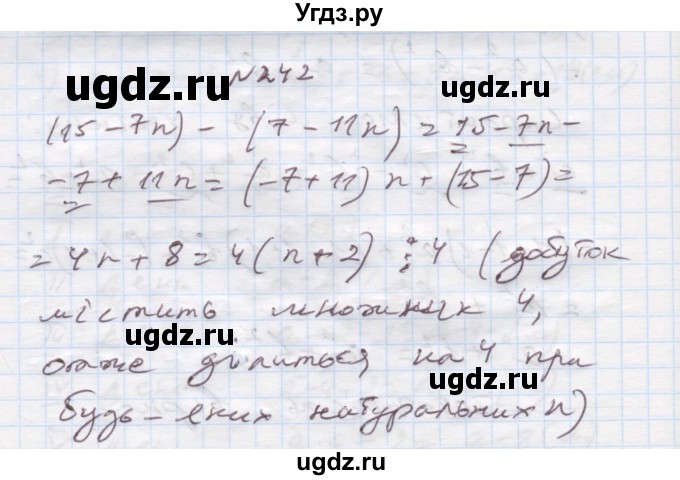 Угдз.ру
№242
ugdz.ru
ugdz.ru
(15 - 7n) - (7 - 11n) = 15 - 7n -
- 7 + 11n = (-7 + 11)n + (15 - 7) =
= 4n + 8 = 4(n + 2) ⋮ 4 (добуток
містить множник 4,
ugdz.ru
ugdz.ru
отже ділиться на 4 при
ugdz.ru
будь-яких натуральних n)
ugdz.ru